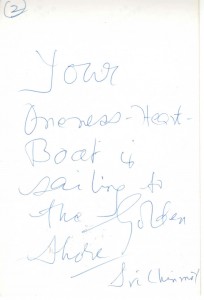 2
Your
Oneness-Heart-
Boat is
sailing to
the Golden
Shore
Sri Chinmoy